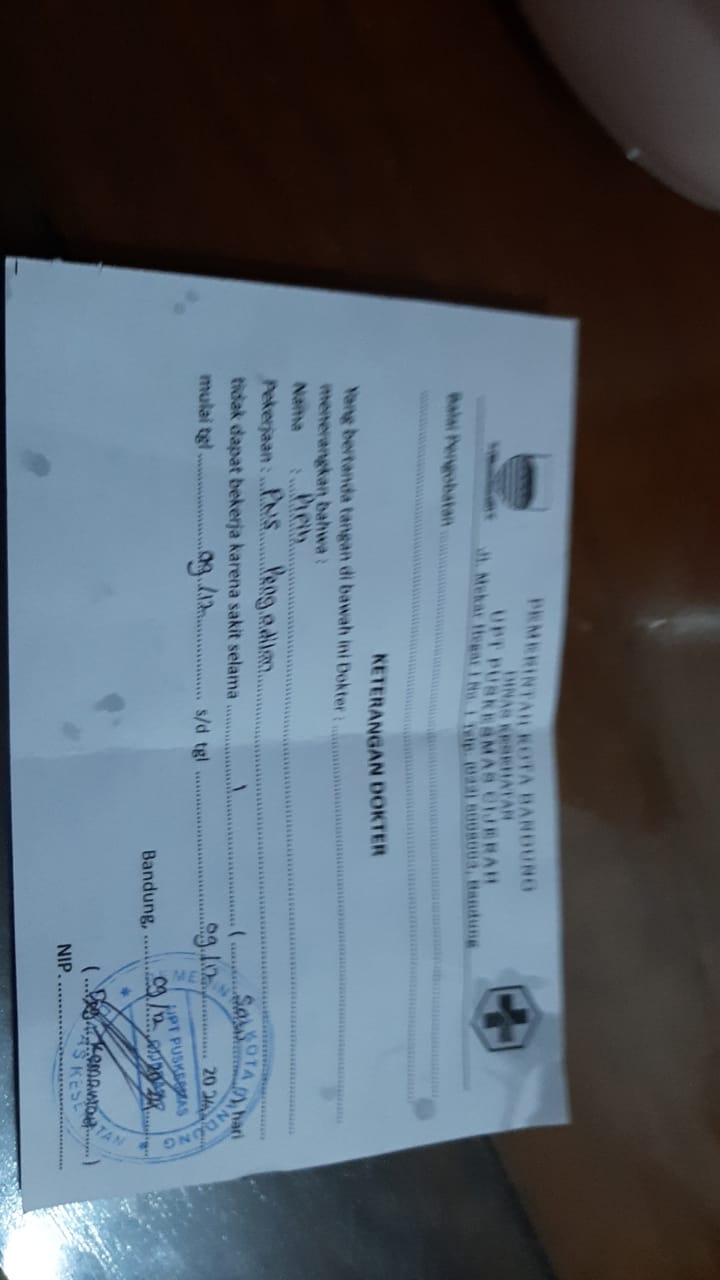 PEMERINTAH KOTA BANDUNG
DINAS KESEHATAN
UPT PUSKESMAS CIJERAH
Jl. Mekar No. 1 Telp. Bandung
Balai Pengobatan ....................
KETERANGAN DOKTER
Yang bertanda tangan di bawah ini Dokter : ....................
menerangkan bahwa :
Nama : ....................
Pekerjaan : PNS Pengadilan
tidak dapat bekerja karena sakit selama 1 ( Satu ) hari
mulai tgl 09/12 s/d tgl 09/12 2024
Bandung, 09/12 2024
UPT PUSKESMAS
( .................... )
NIP. ....................